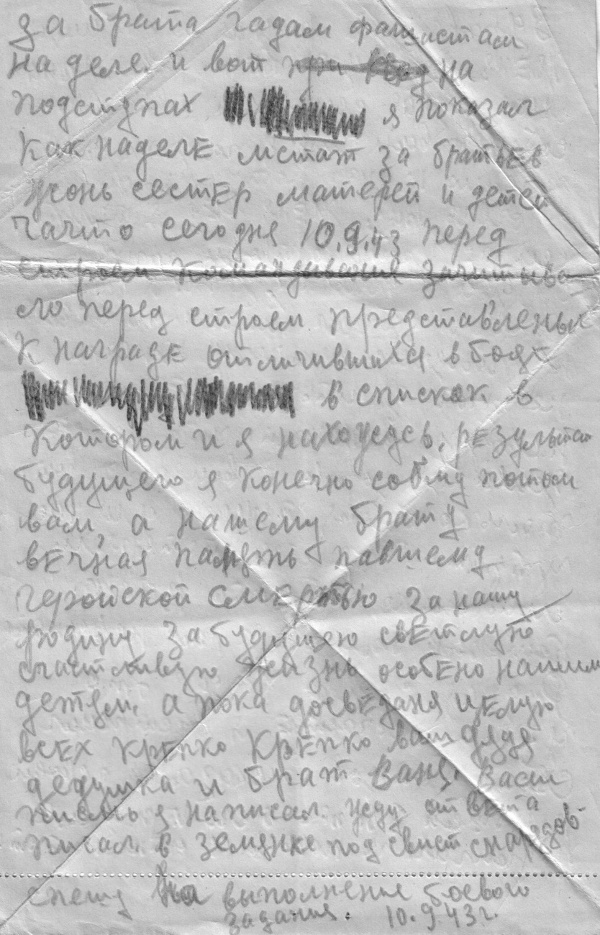 за брата гадам фашистам
на деле. и вот на
подступах я показал
как наделе мстят за братьев
жонь сестер матерей и детей
сегодня 10.9.43 перед
строем командование зачитыва
ло перед строем представленых
к награде отличившихся в боях
в списках в
котором и я нахожусь. результат
будущего я конечно сообщу потом
вам, а нашему брату
вечная память павшему
геройской смертью за нашу
родину за будущею светлую
счастливую жизнь особено нашим
детям. а пока досведаня целую
всех крепко крепко ваш дядя
дедушка и брат Ваня. Васи
письмо я написал жду ответа
писал в землянке под свист снарядов
спешу на выполнение боевого
задания. 10.9.43г.